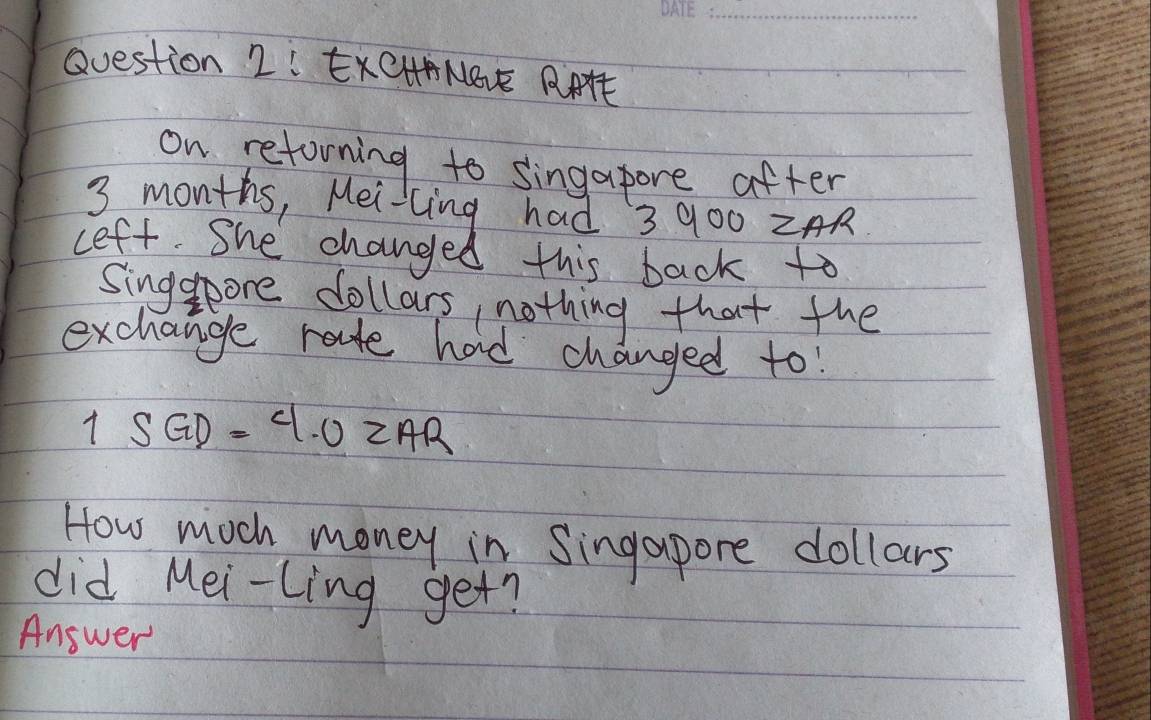 DATE :
Question 2: EXCHANGE RATE
On returning to Singapore after
3 months, Mei-Ling had 3 900 ZAR
left. She changed this back to
Singapore dollars, nothing that the
exchange rate had changed to:
1 SGD = 4.0 ZAR
How much money in Singapore dollars
did Mei-Ling get?
Answer